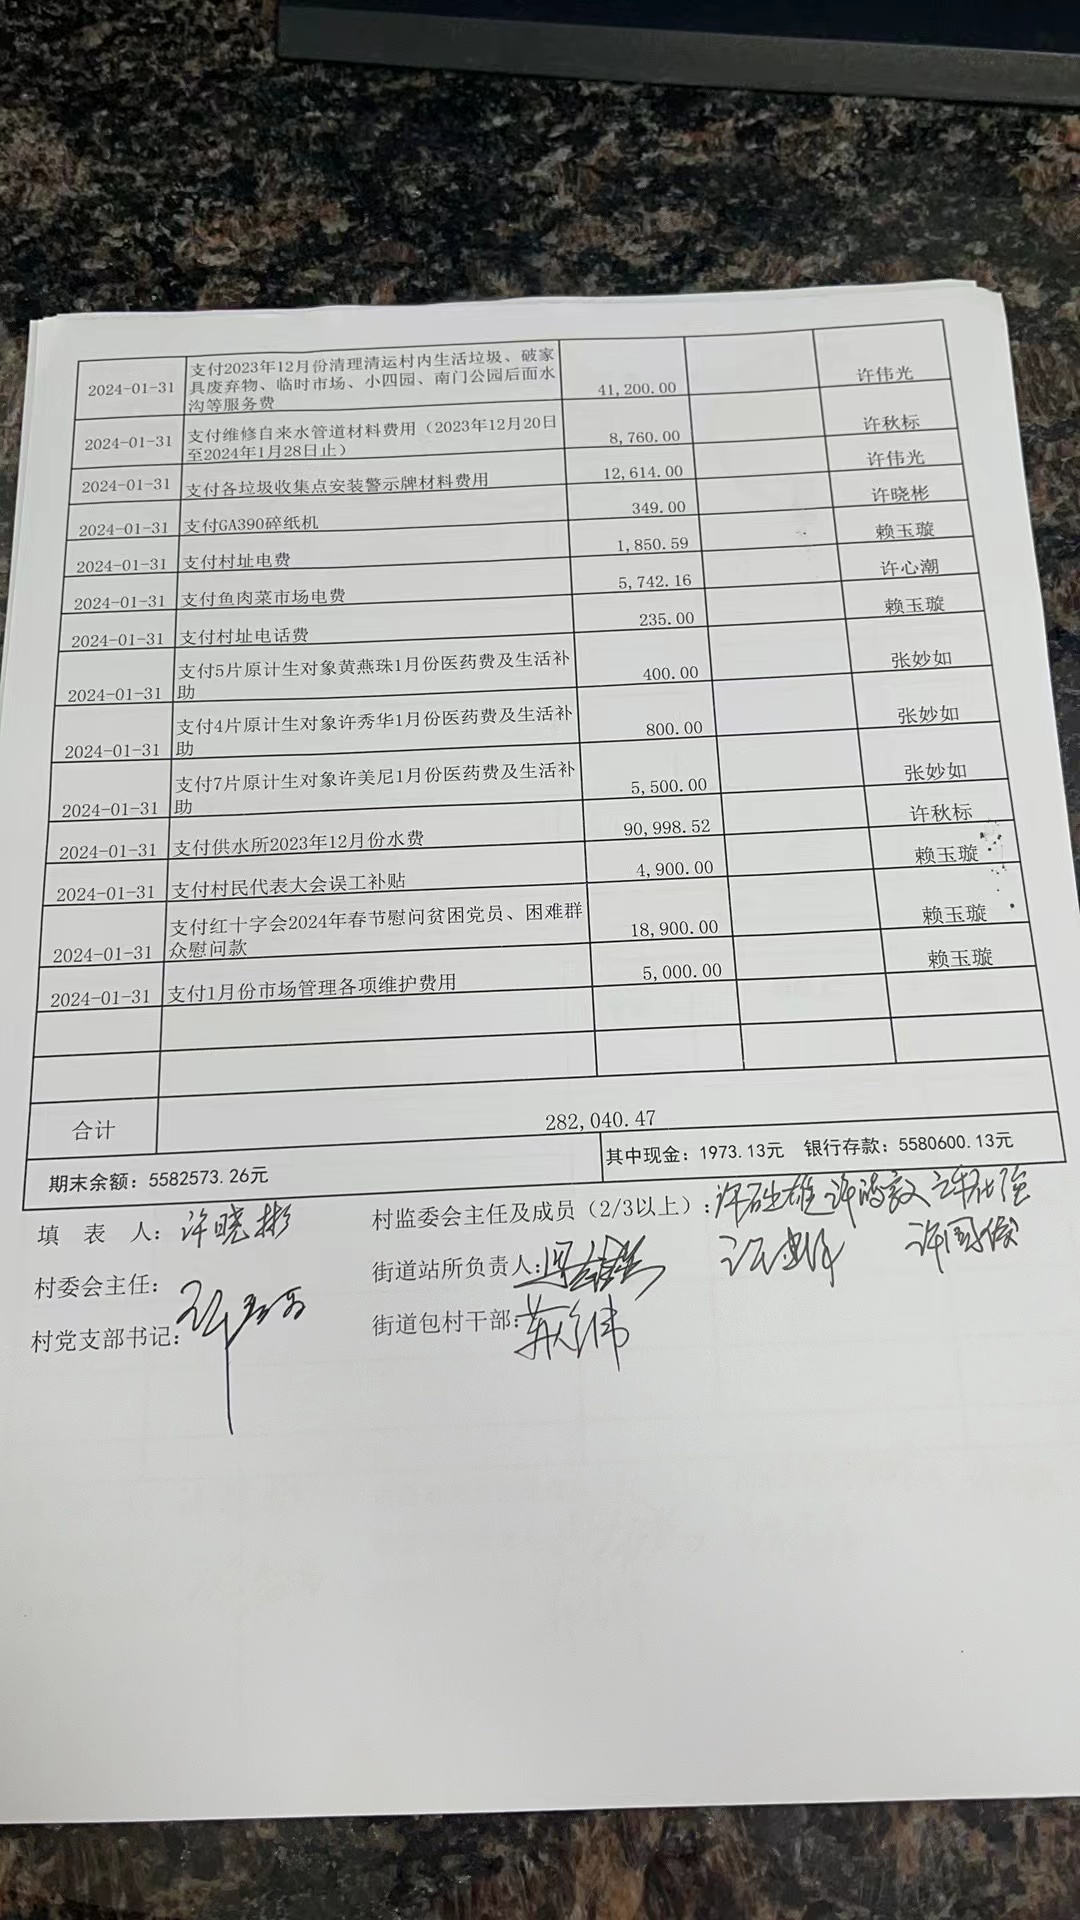 2024-01-31 支付2023年12月份清理清运村内生活垃圾、破家
具废弃物、临时市场、小四园、南门公园后面水
沟等服务费 41,200.00 许伟光
2024-01-31 支付维修自来水管道材料费用（2023年12月20日
至2024年1月28日止） 8,760.00 许秋标
2024-01-31 支付各垃圾收集点安装警示牌材料费用 12,614.00 许伟光
2024-01-31 支付GA390碎纸机 349.00 许晓彬
2024-01-31 支付村址电费 1,850.59 赖玉璇
2024-01-31 支付鱼肉菜市场电费 5,742.16 许心潮
2024-01-31 支付村址电话费 235.00 赖玉璇
2024-01-31 支付5片原计生对象黄燕珠1月份医药费及生活补
助 400.00 张妙如
2024-01-31 支付4片原计生对象许秀华1月份医药费及生活补
助 800.00 张妙如
2024-01-31 支付7片原计生对象许美尼1月份医药费及生活补
助 5,500.00 张妙如
2024-01-31 支付供水所2023年12月份水费 90,998.52 许秋标
2024-01-31 支付村民代表大会误工补贴 4,900.00 赖玉璇
2024-01-31 支付红十字会2024年春节慰问贫困党员、困难群
众慰问款 18,900.00 赖玉璇
2024-01-31 支付1月份市场管理各项维护费用 5,000.00 赖玉璇
合计 282,040.47
期末余额：5582573.26元 其中现金：1973.13元 银行存款：5580600.13元
填 表 人：许晓彬 村监委会主任及成员（2/3以上）：
村委会主任： 街道站所负责人：
村党支部书记： 街道包村干部：